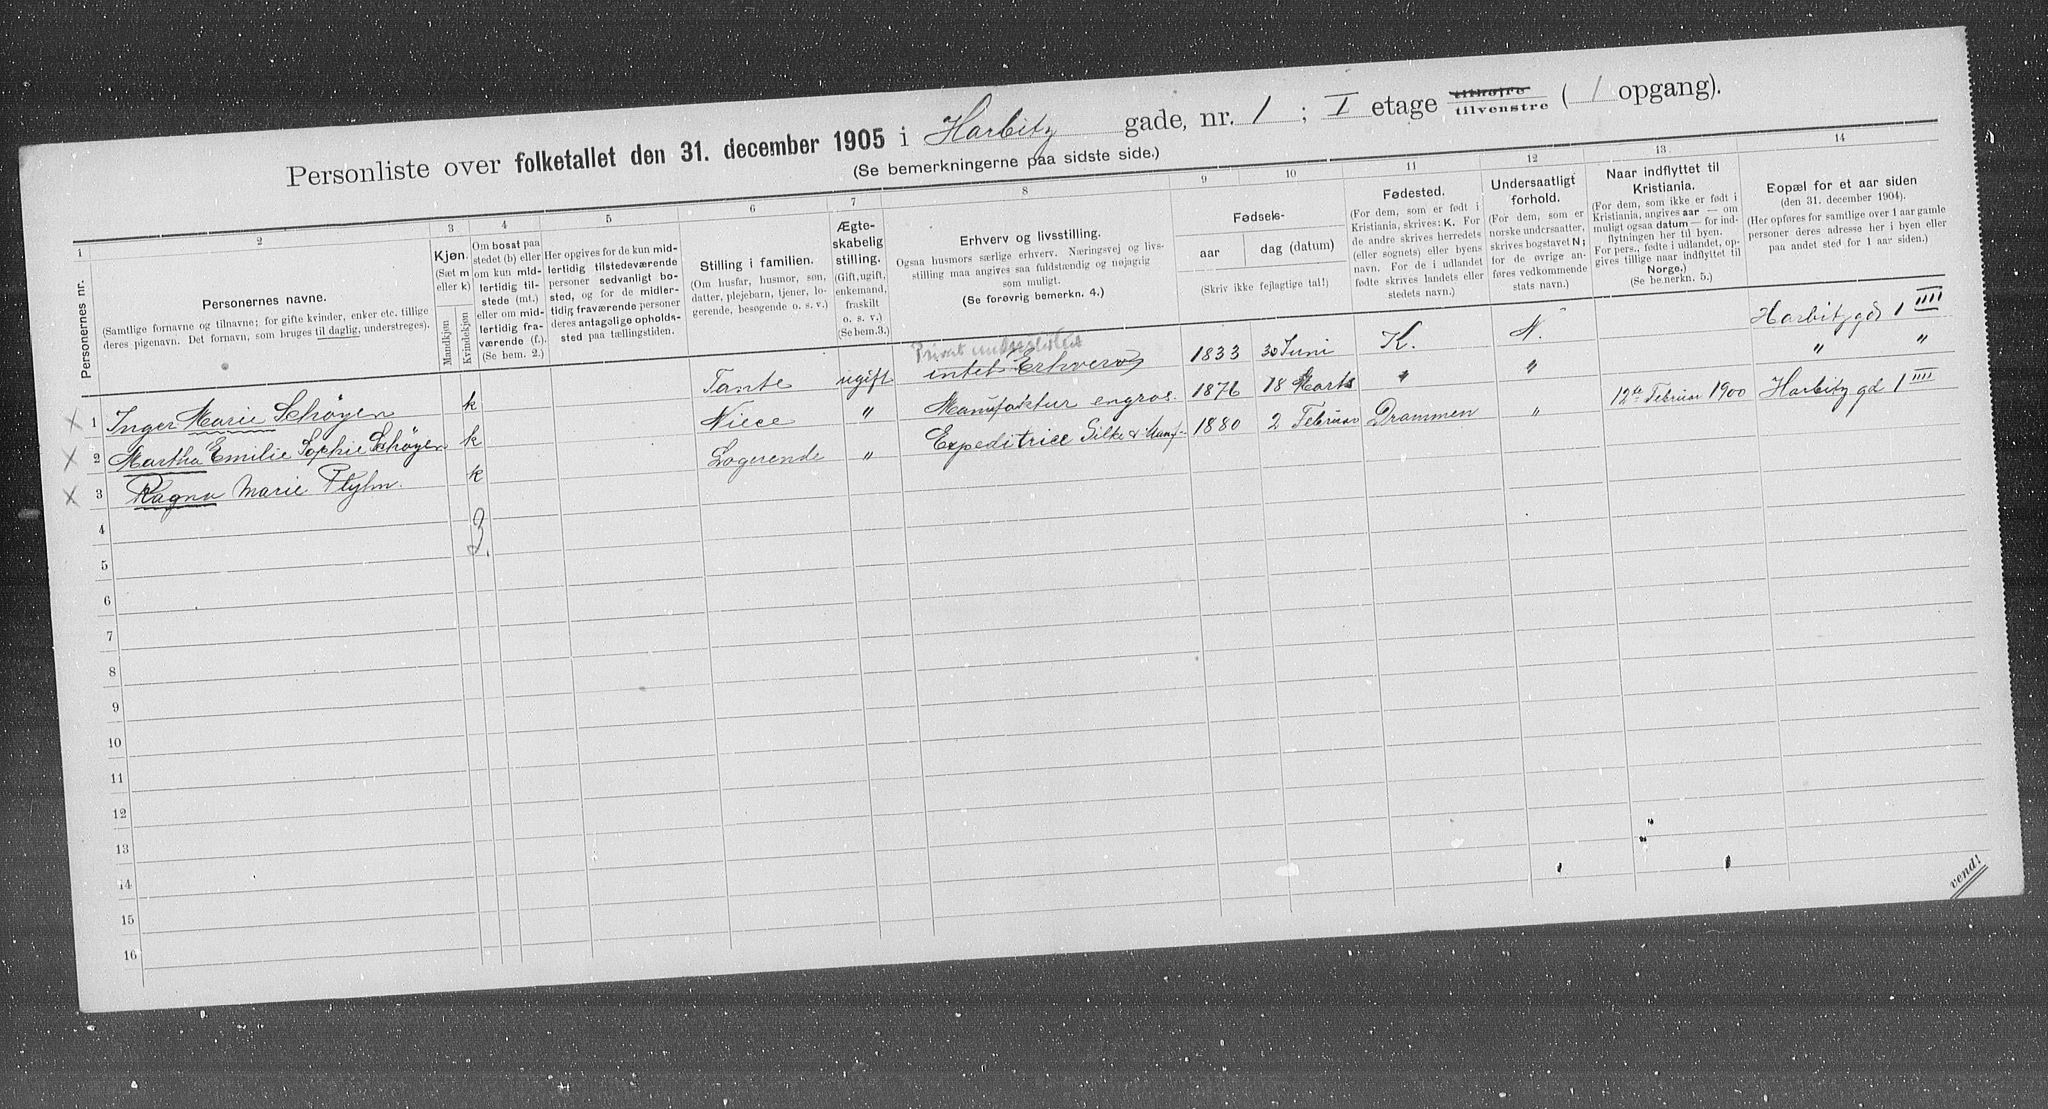 Personliste over folketallet den 31. december 1905 i Harbitz gade, nr. 1 ; I etage tilhøjre tilvenstre ( 1 opgang).
(Se bemerkningerne paa sidste side.)
1 2 3 4 5 6 7 8 9 10 11 12 13 14
Personernes nr.
Personernes navne.
(Samtlige fornavne og tilnavne; for gifte kvinder, enker etc. tillige
deres pigenavn. Det fornavn, som bruges til daglig, understreges).
Kjøn.
(Sæt m
eller k)
Mandkjøn
Kvindekjøn
Om bosat paa
stedet (b) eller
om kun mid-
lertidig til-
stede (mt.)
eller om mid-
lertidig fra-
værende (f.).
(Se bem. 2.)
Her opgives for de kun mid-
lertidig tilstedeværende
personer sedvanligt bo-
sted, og for de midler-
tidig fraværende personer
deres antagelige opholds-
sted paa tællingstiden.
Stilling i familien.
(Om husfar, husmor, søn,
datter, plejebarn, tjener, lo-
gerende, besøgende o. s. v.)
Ægte-
skabelig
stilling.
(Gift, ugift,
enkemand,
fraskilt
o. s. v.)
(Se bem.3.)
Erhverv og livsstilling.
Ogsaa husmors særlige erhverv. Næringsvej og livs-
stilling maa angives saa fuldstændig og nøjagtig
som muligt.
(Se forøvrig bemerkn. 4.)
Fødsels-
aar
dag (datum)
(Skriv ikke fejlagtige tal!)
Fødested.
(For dem, som er født i
Kristiania, skrives: K. For
de andre skrives herredets
(eller sognets) eller byens
navn. For de i udlandet
fødte skrives landets eller
stedets navn.)
Undersaatligt
forhold.
(For dem, som er
norske undersaatter,
skrives bogstavet N;
for de øvrige an-
føres vedkommende
stats navn.)
Naar indflyttet til
Kristiania.
(For dem, som ikke er født i
Kristiania, angives aar — om
muligt ogsaa datum — for ind-
flytningen her til byen.
For pers., fødte i udlandet, op-
gives tillige naar indflyttet til
Norge.)
(Se bemerkn. 5.)
Bopæl for et aar siden
(den 31. december 1904).
(Her opføres for samtlige over 1 aar gamle
personer deres adresse her i byen eller
paa andet sted for 1 aar siden.)
Privat understøttet
x 1 Inger Marie Schøyen k Tante ugift intet Erhverv 1833 30 Juni K. N. Harbitz gd 1 IIII
x 2 Martha Emilie Sophie Schøyen k Niece " Manufaktur engros. 1876 18 Marts " " " "
x 3 Ragna Marie Flyhn. k Logerende " Expeditrice Silke & Manf- 1880 2 Februar Drammen " 12te Februar 1900 Harbitz gd 1 IIII
4
3.
5
6
7
8
9
10
11
12
13
14
15
16
vend!